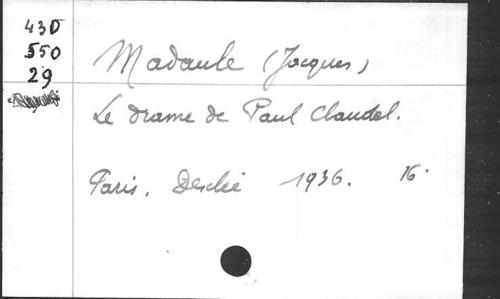 430
550
29
Madaule (Jacques)
Le drame de Paul Claudel.
Paris. Desclée 1936. 16°